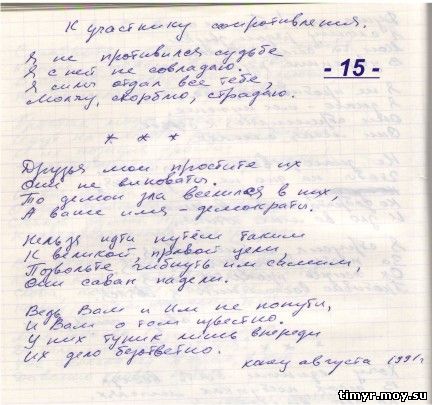 К участнику сопротивления.
Я не противился судьбе
Я с ней не совладаю.
Я силы отдал все тебе,
Молчу, скорблю, страдаю.
- 15 -
* * *
Друзья мои простите их
Они не виноваты.
То демон зла вселился в них,
А ваше имя - демократы.
Нельзя идти путём таким
К великой, правой цели
Позвольте гибнуть им самим,
Они саван надели.
Ведь Вам и Им не по пути,
И Вам о том известно.
У них тупик лишь впереди
Их дело безответно.
конец августа 1991г.
timyr.moy.su